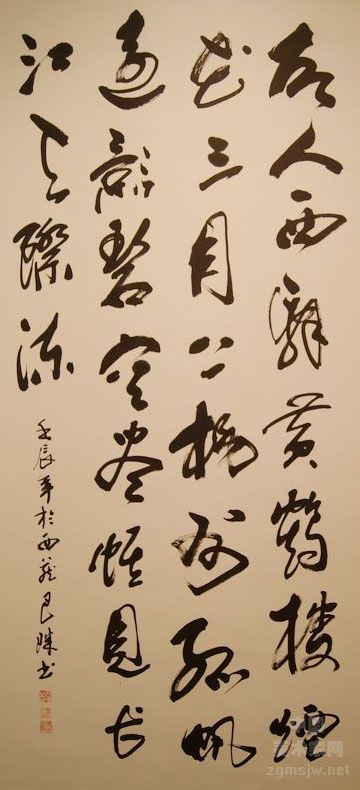 故人西辭黄鶴樓煙
花三月下揚州孤帆
遠影碧空盡惟見長
江天際流
壬辰年於西藏良書
zgmsjw.net